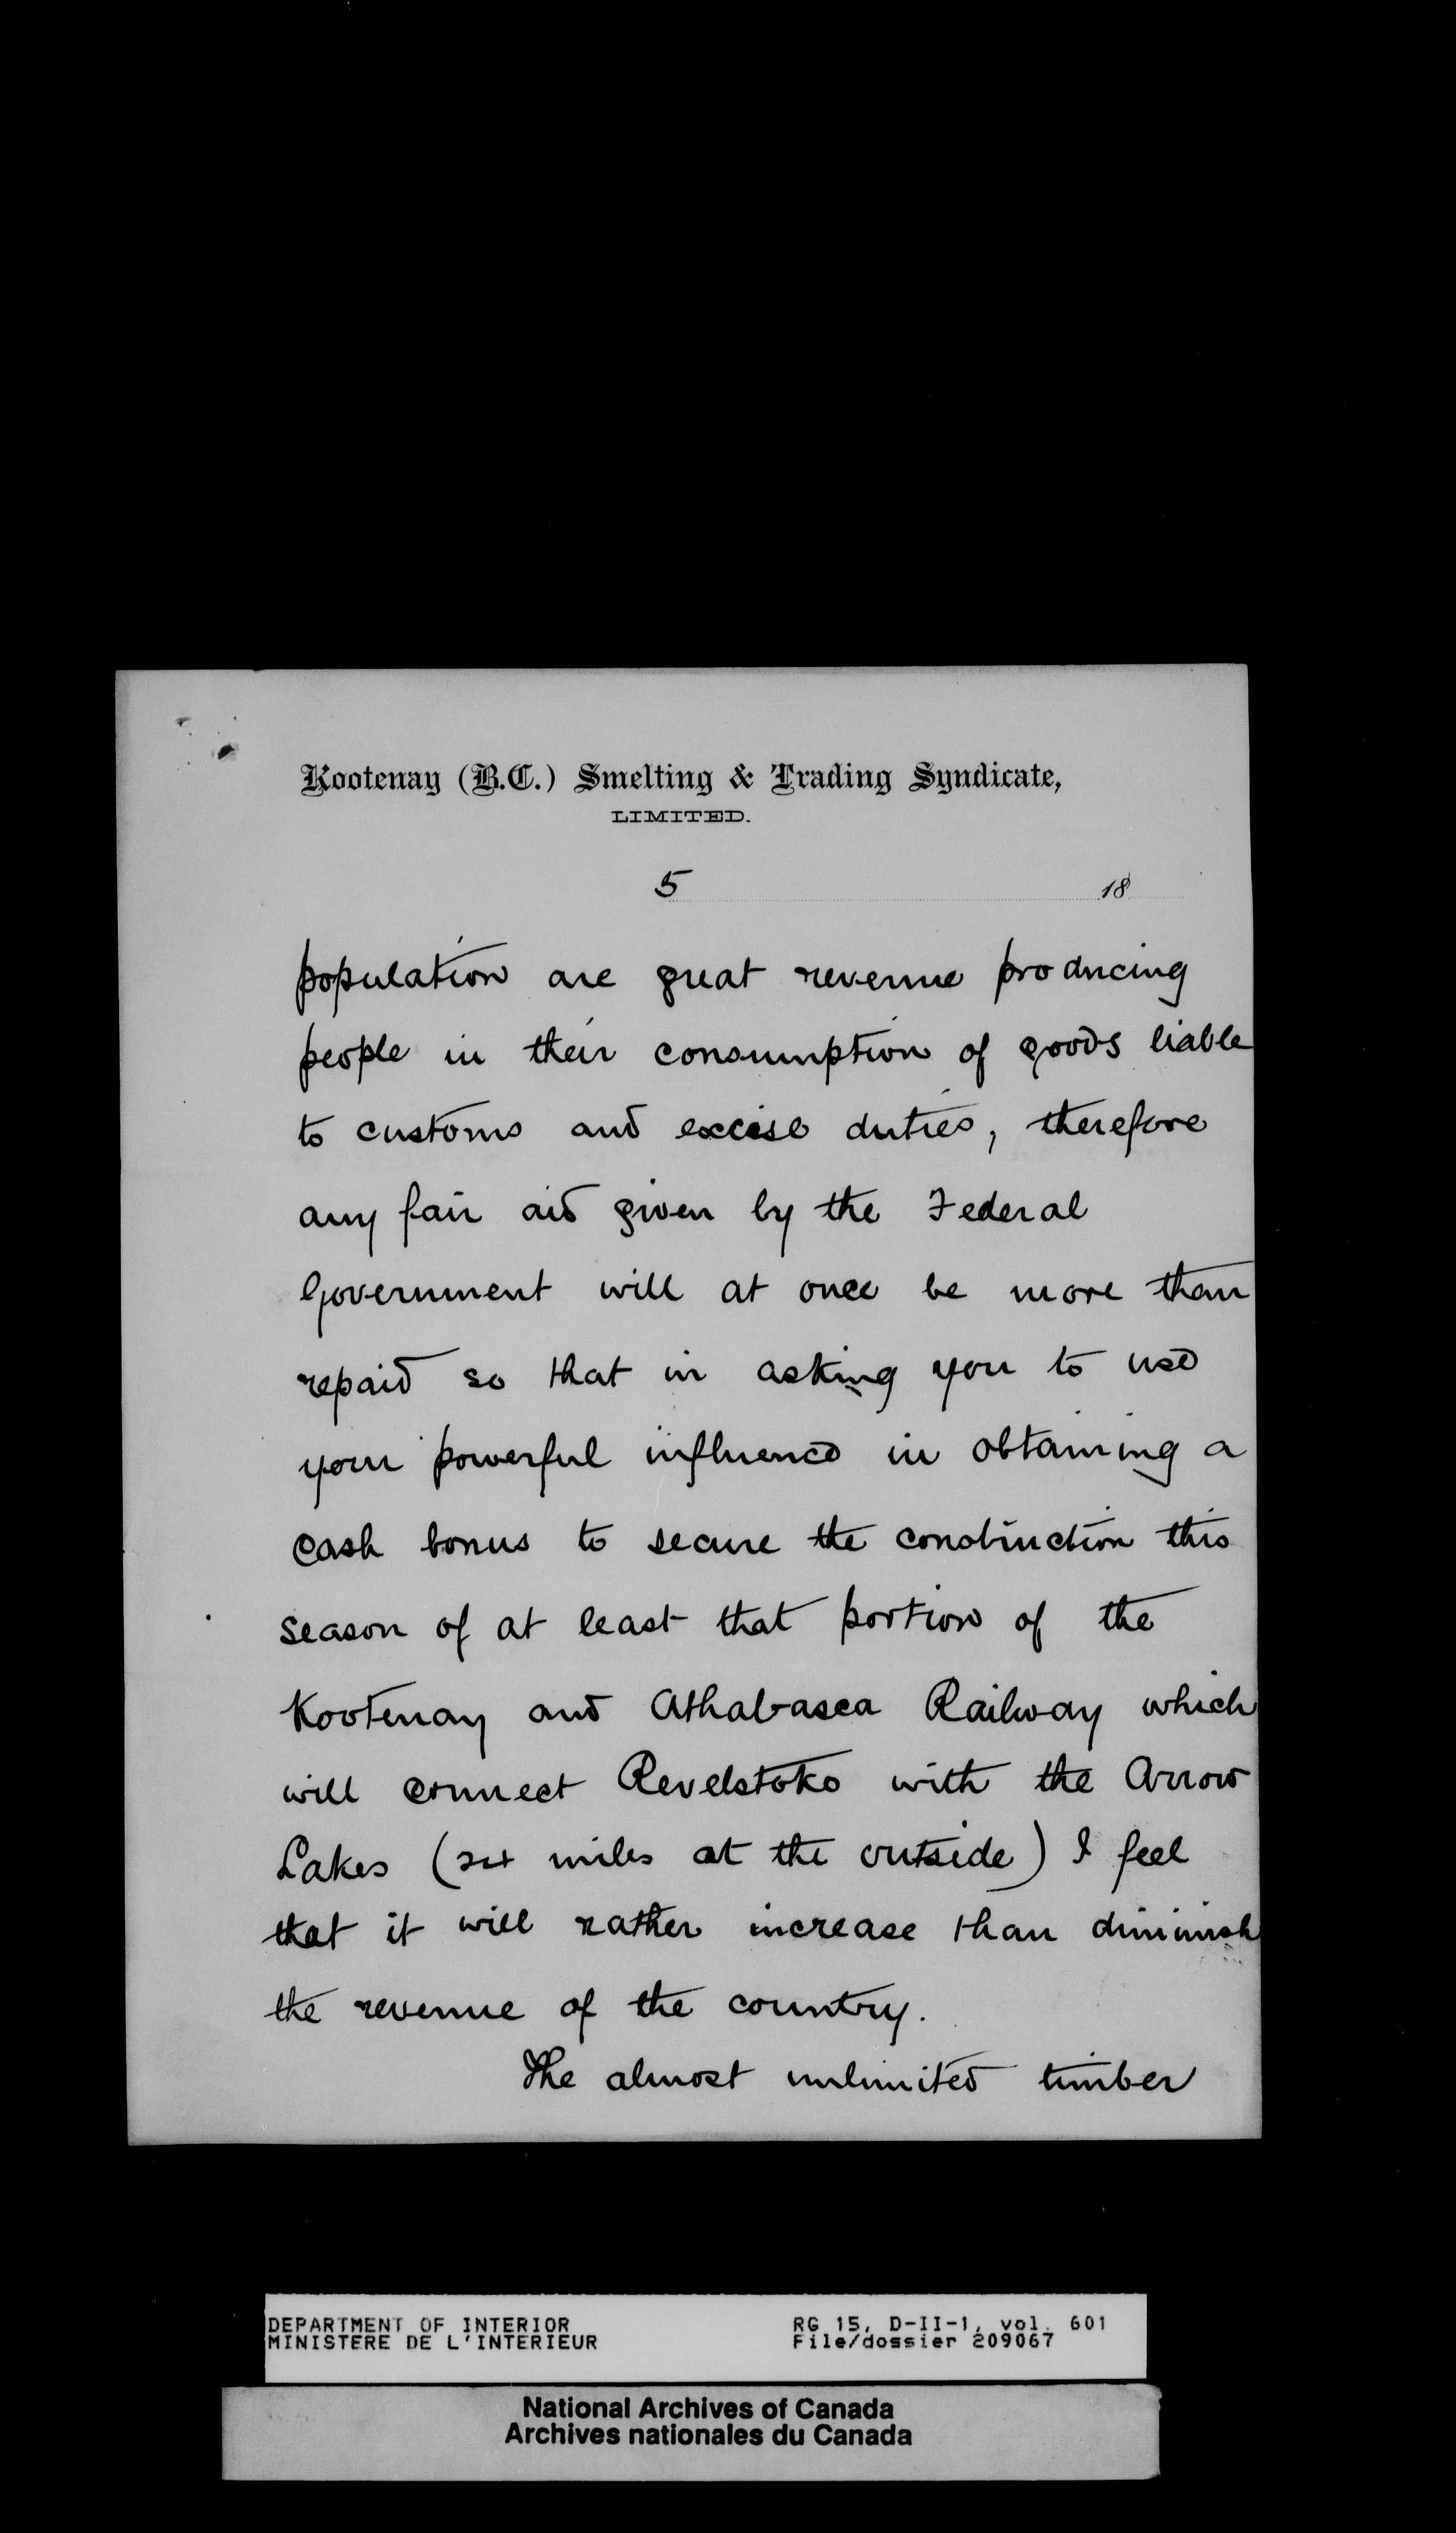 Kootenay (B.C.) Smelting & Trading Syndicate,
LIMITED.
5 18
population are great revenue producing
people in their consumption of goods liable
to customs and excise duties, therefore
any fair aid given by the Federal
Government will at once be more than
repaid so that in asking you to use
your powerful influence in obtaining a
cash bonus to secure the construction this
season of at least that portion of the
Kootenay and Athabasca Railway which
will connect Revelstoke with the Arrow
Lakes (six miles at the outside) I feel
that it will rather increase than diminish
the revenue of the country.
The almost unlimited timber
DEPARTMENT OF INTERIOR RG 15, D-II-1, vol. 601
MINISTERE DE L'INTERIEUR File/dossier 209067
National Archives of Canada
Archives nationales du Canada